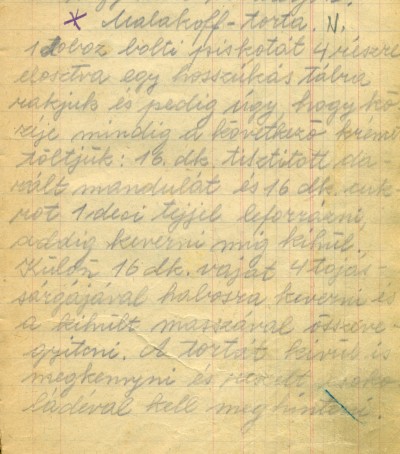 Malakoff-torta. N.
1 doboz bolti piskótát 4 részre
elosztva egy hosszúkás tálra
rakjuk és pedig úgy, hogy kö-
zéje mindig a következő krémet
töltjük: 16. dk. tisztított da-
rált mandulát és 16 dk. cuk-
rot 1 deci tejjel leforrázni,
addig keverni míg kihül.
Külön 16 dk. vajat 4 tojás-
sárgájával habosra keverni és
a kihült masszával összeve-
gyíteni. A tortát kívül is
megkenyni és reszelt csoko-
ládéval kell meghinteni.